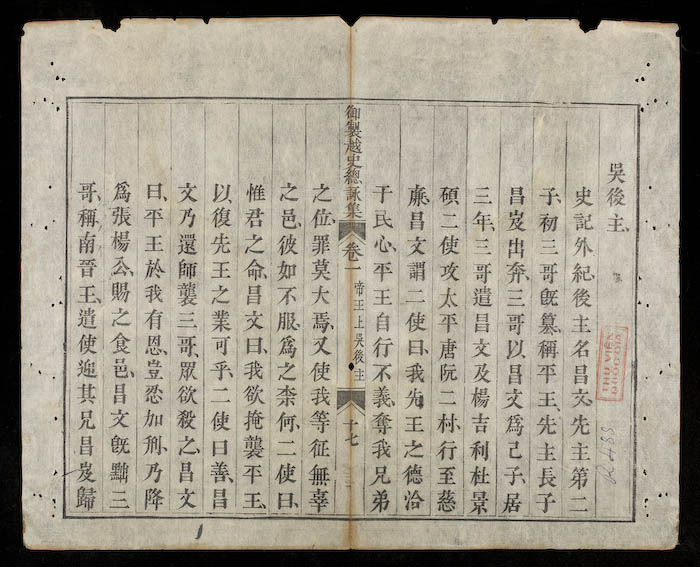 吳後主、
史記外紀、後主名昌文、先主第二
子、初三哥既篡、稱平王、先主長子
昌岌出奔、三哥以昌文爲己子、居
三年、三哥遣昌文及楊吉利杜景
碩二使攻太平唐阮二村、行至慈
廉、昌文謂二使曰、我先王之德洽
于民心、平王自行不義、奪我兄弟
御製越史總詠集 卷一 帝王上吳後主 十七
之位、罪莫大焉、又使我等征無辜
之邑、彼如不服、爲之柰何、二使曰、
惟君之命、昌文曰、我欲掩襲平王、
以復先王之業可乎、二使曰善、昌
文乃還師襲三哥、眾欲殺之、昌文
曰、平王於我有恩、豈忍加刑、乃降
爲張楊公、賜之食邑、昌文既黜三
哥、稱南晉王、遣使迎其兄昌岌歸
THƯ VIỆN